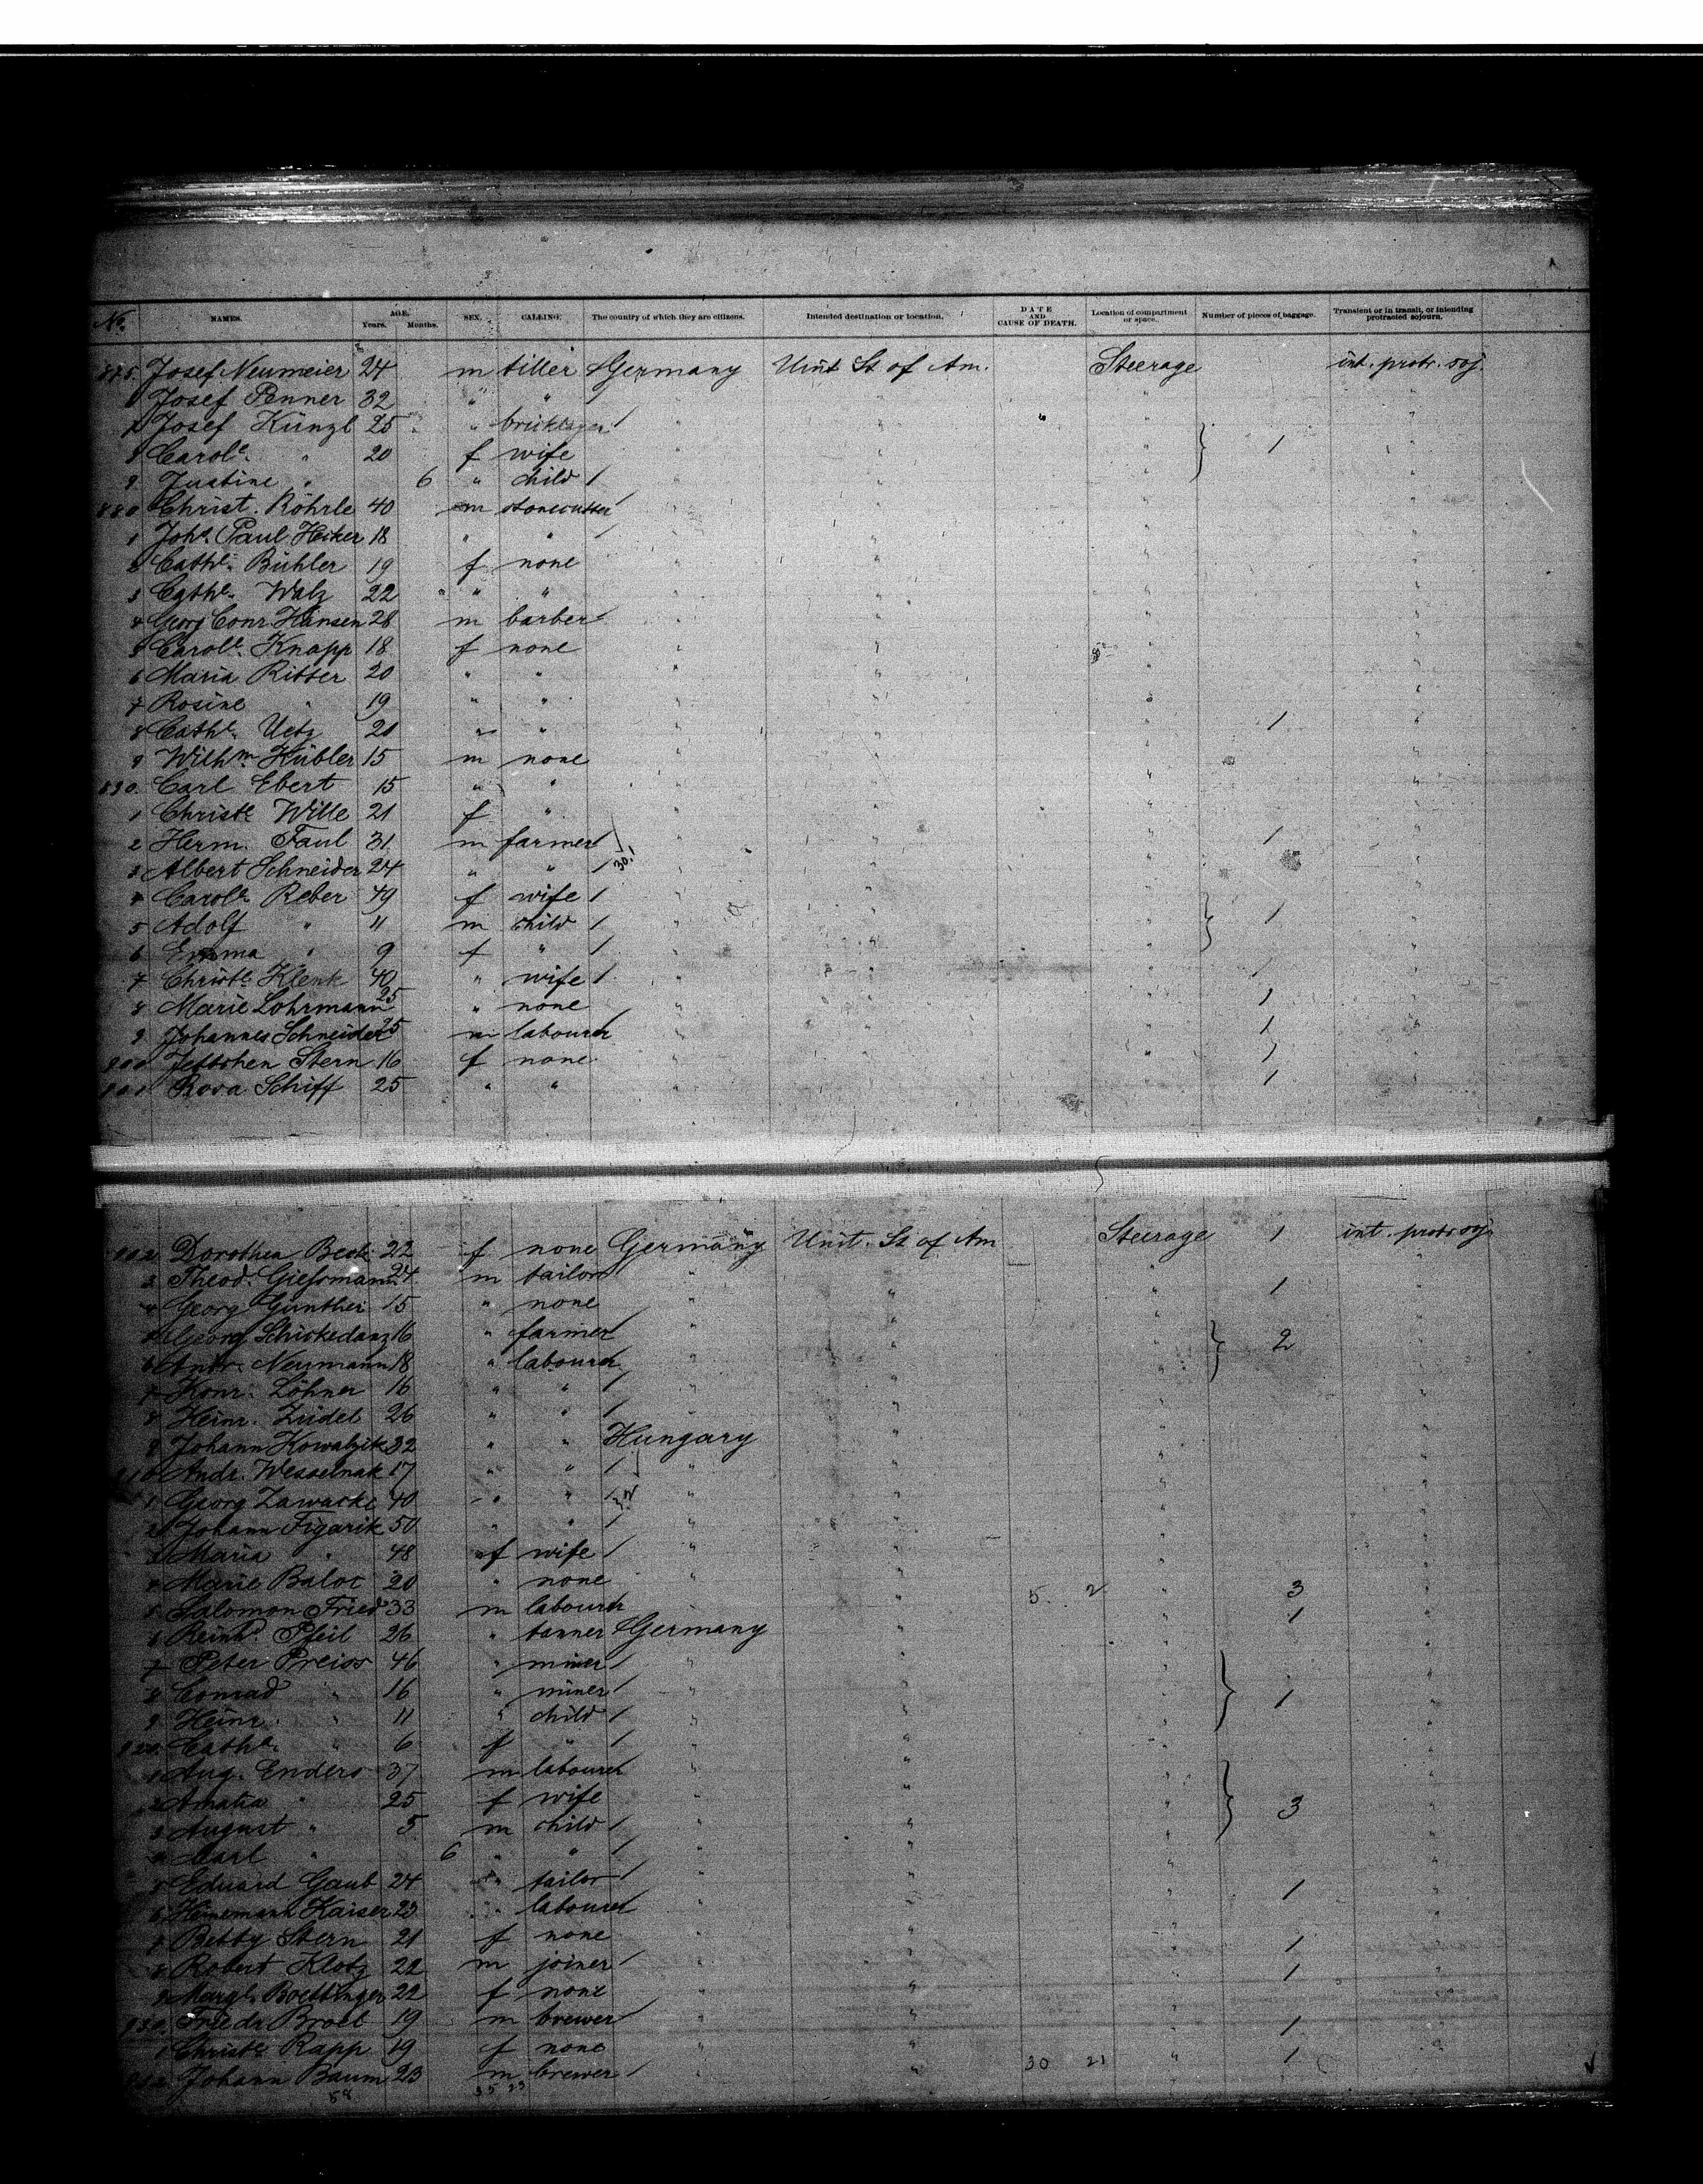 No. NAMES. AGE. Years. Months. SEX. CALLING. The country of which they are citizens. Intended destination or location. DATE AND CAUSE OF DEATH. Location of compartment or space. Number of pieces of baggage. Transient or in transit, or intending protracted sojourn.
875. Josef Neumeier 24 m tiller Germany Unit St of Am. Steerage int. protr. soj.
6 Josef Penner 32 " " / " " " "
7 Josef Künzl 25 " bricklayer / " " " "
8 Carole. " 20 f wife " " " 1 "
9 Justine " 6 " child / " " " "
880 Christ. Röhrle 40 m stonecutter " " " "
1 Johs. Paul Heker 18 " " / " " " "
2 Cathe. Bühler 19 f none " " " "
3 Cathe. Walz 22 " " " " " "
4 Georg Conr. Hansen 28 m barber " " " "
5 Carole. Knapp 18 f none " " " "
6 Maria Ritter 20 " " " " " "
7 Rosine " 19 " " " " " "
8 Cathe. Uetz 21 " " " " " 1 "
9 Wilhm Hübler 15 m none " " " "
890. Carl Ebert 15 " " " " " "
1 Christe Wille 21 f " " " " "
2 Herm. Faul 31 m farmer / " " " 1 "
3 Albert Schneider 24 " " / 30. " " " "
4 Carole. Reber 49 f wife / " " " "
5 Adolf " 11 m child / " " " 1 "
6 Emma " 9 f " / " " " "
7 Christe Klenk 40 " wife / " " " 1 "
8 Marie Lohrmann 25 " none " " " 1 "
9 Johannes Schneider 25 m labourer " " " 1 "
900 Jettchen Stern 16 f none " " " 1 "
901 Rosa Schiff 25 " " " " " 1 "
902 Dorothea Beck 22 f none Germany Unit. St of Am Steerage 1 int. protr soj.
3 Theod. Giessmann 24 m tailor " " " 1 "
4 Georg Günther 15 " none " " " "
5 Georg Schickedanz 16 " farmer " " " 2 "
6 Andr. Neumann 18 " labourer " " " "
7 Konr. Löhner 16 " " / " " " "
8 Heinr. Zudel 26 " " / " " " "
9 Johann Kowalzik 32 " " Hungary " " "
910 Andr. Wesselnak 17 " " / " " " "
1 Georg Zawacke 40 " " / " " " "
2 Johann Figarik 50 " " / " " " "
3 Maria " 48 f wife / " " " "
4 Marie Baloc 20 " none " " 5 2 " 3 "
5 Salomon Fried 33 m labourer " " 1 "
6 Reinhd. Pfeil 26 " tanner Germany " " "
7 Peter Preiss 46 " miner / " " " "
8 Conrad " 16 " miner / " " " 1 "
9 Heinr. " 11 " child / " " " "
920 Catha. " 6 f " / " " " "
1 Aug. Enders 37 m labourer " " " "
2 Amalia " 25 f wife " " " 3 "
3 August " 5 m child / " " " "
4 Carl " 6 " " / " " " "
5 Eduard Gaub 24 " tailor / " " " 1 "
6 Heinemann Kaiser 23 " labourer " " " "
7 Betty Stern 21 f none " " " 1 "
8 Robert Klotz 22 m joiner / " " " 1 "
9 Margt. Boettinger 22 f none " " " "
930 Friedr Broel 19 m brewer " " " 1 "
1 Christe Rapp 19 f none " " 30 21 " 1 "
932 Johann Baum 23 m brewer / " " " "
58 35 23